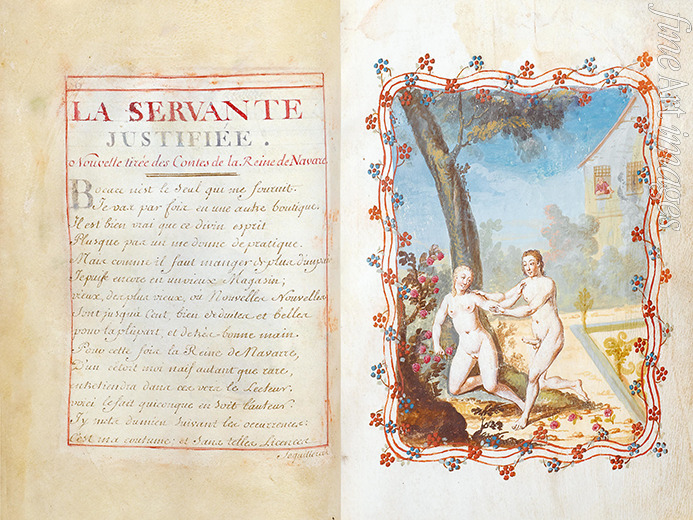 LA SERVANTE
JUSTIFIÉE.
Nouvelle tirée des Contes de la Reine de Navare
Bocace n'est le Seul qui me fournit.
Je vas par fois en une autre boutique.
Il est bien vrai que ce divin esprit
Plusque pas un me donne de pratique.
Mais comme il faut manger de plus d'un pain
Je puise encore en un vieux Magasin;
vieux, des plus vieux, ou Nouvelles Nouvelles
Sont jusqu'à Cent, bien deduites et belles
pour la plûpart, et de très bonne main.
Pour cette fois la Reine de Navarre,
D'un c'etoit moi naif autant que rare,
entretiendra dans ces vers le Lecteur.
voici le fait quiconque en Soit l'auteur.
J'y mets du mien Suivant les occurrences:
C'est ma coutume; et Sans telles Licences
Je quitterois
fine art images